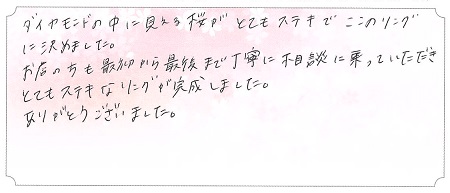 ダイヤモンドの中に見える桜がとてもステキでここのリング
に決めました。
お店の方も最初から最後まで丁寧に相談に乗っていただき
とてもステキなリングが完成しました。
ありがとうございました。